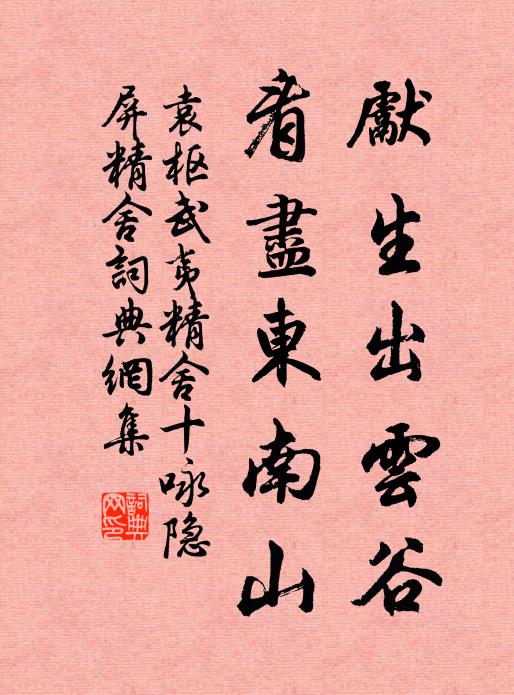 獻生出雲谷
看盡東南山
袁枢武夷精舍十咏隐
屏精舍詞典網集
詞典网印